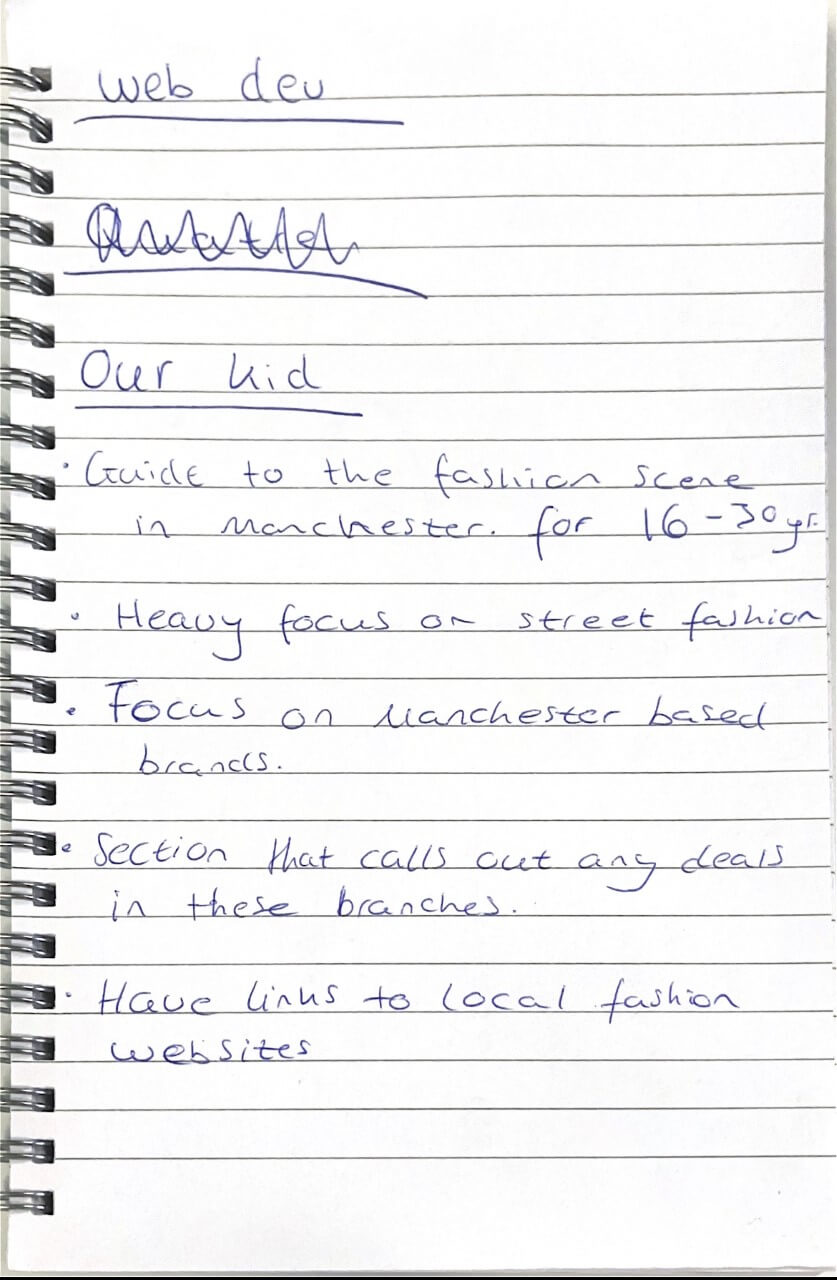 web dev
Our kid
· Guide to the fashion scene
in Manchester. for 16-30yr.
· Heavy focus on street fashion
· Focus on Manchester based
brands.
· Section that calls out any deals
in these branches.
· Have links to local fashion
websites